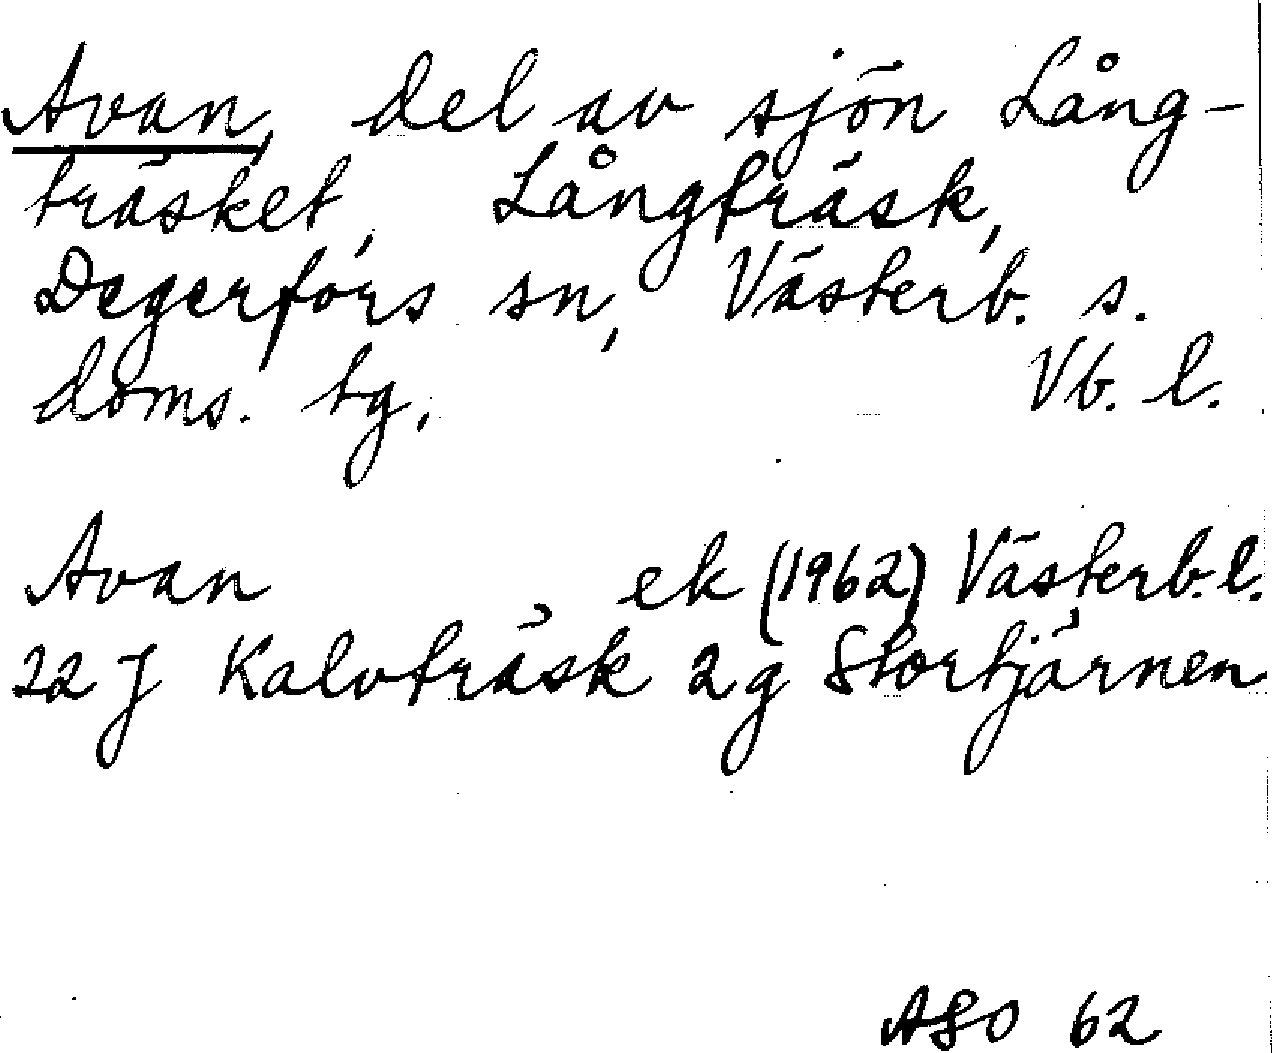 Avan, del av sjön Lång-
träsket, Långträsk,
Degerfors sn, Västerb. s.
doms. tg, Vb. l.
Avan ek (1962) Västerb. l.
22 J Kalvträsk 2 g Stortjärnen
ASO 62